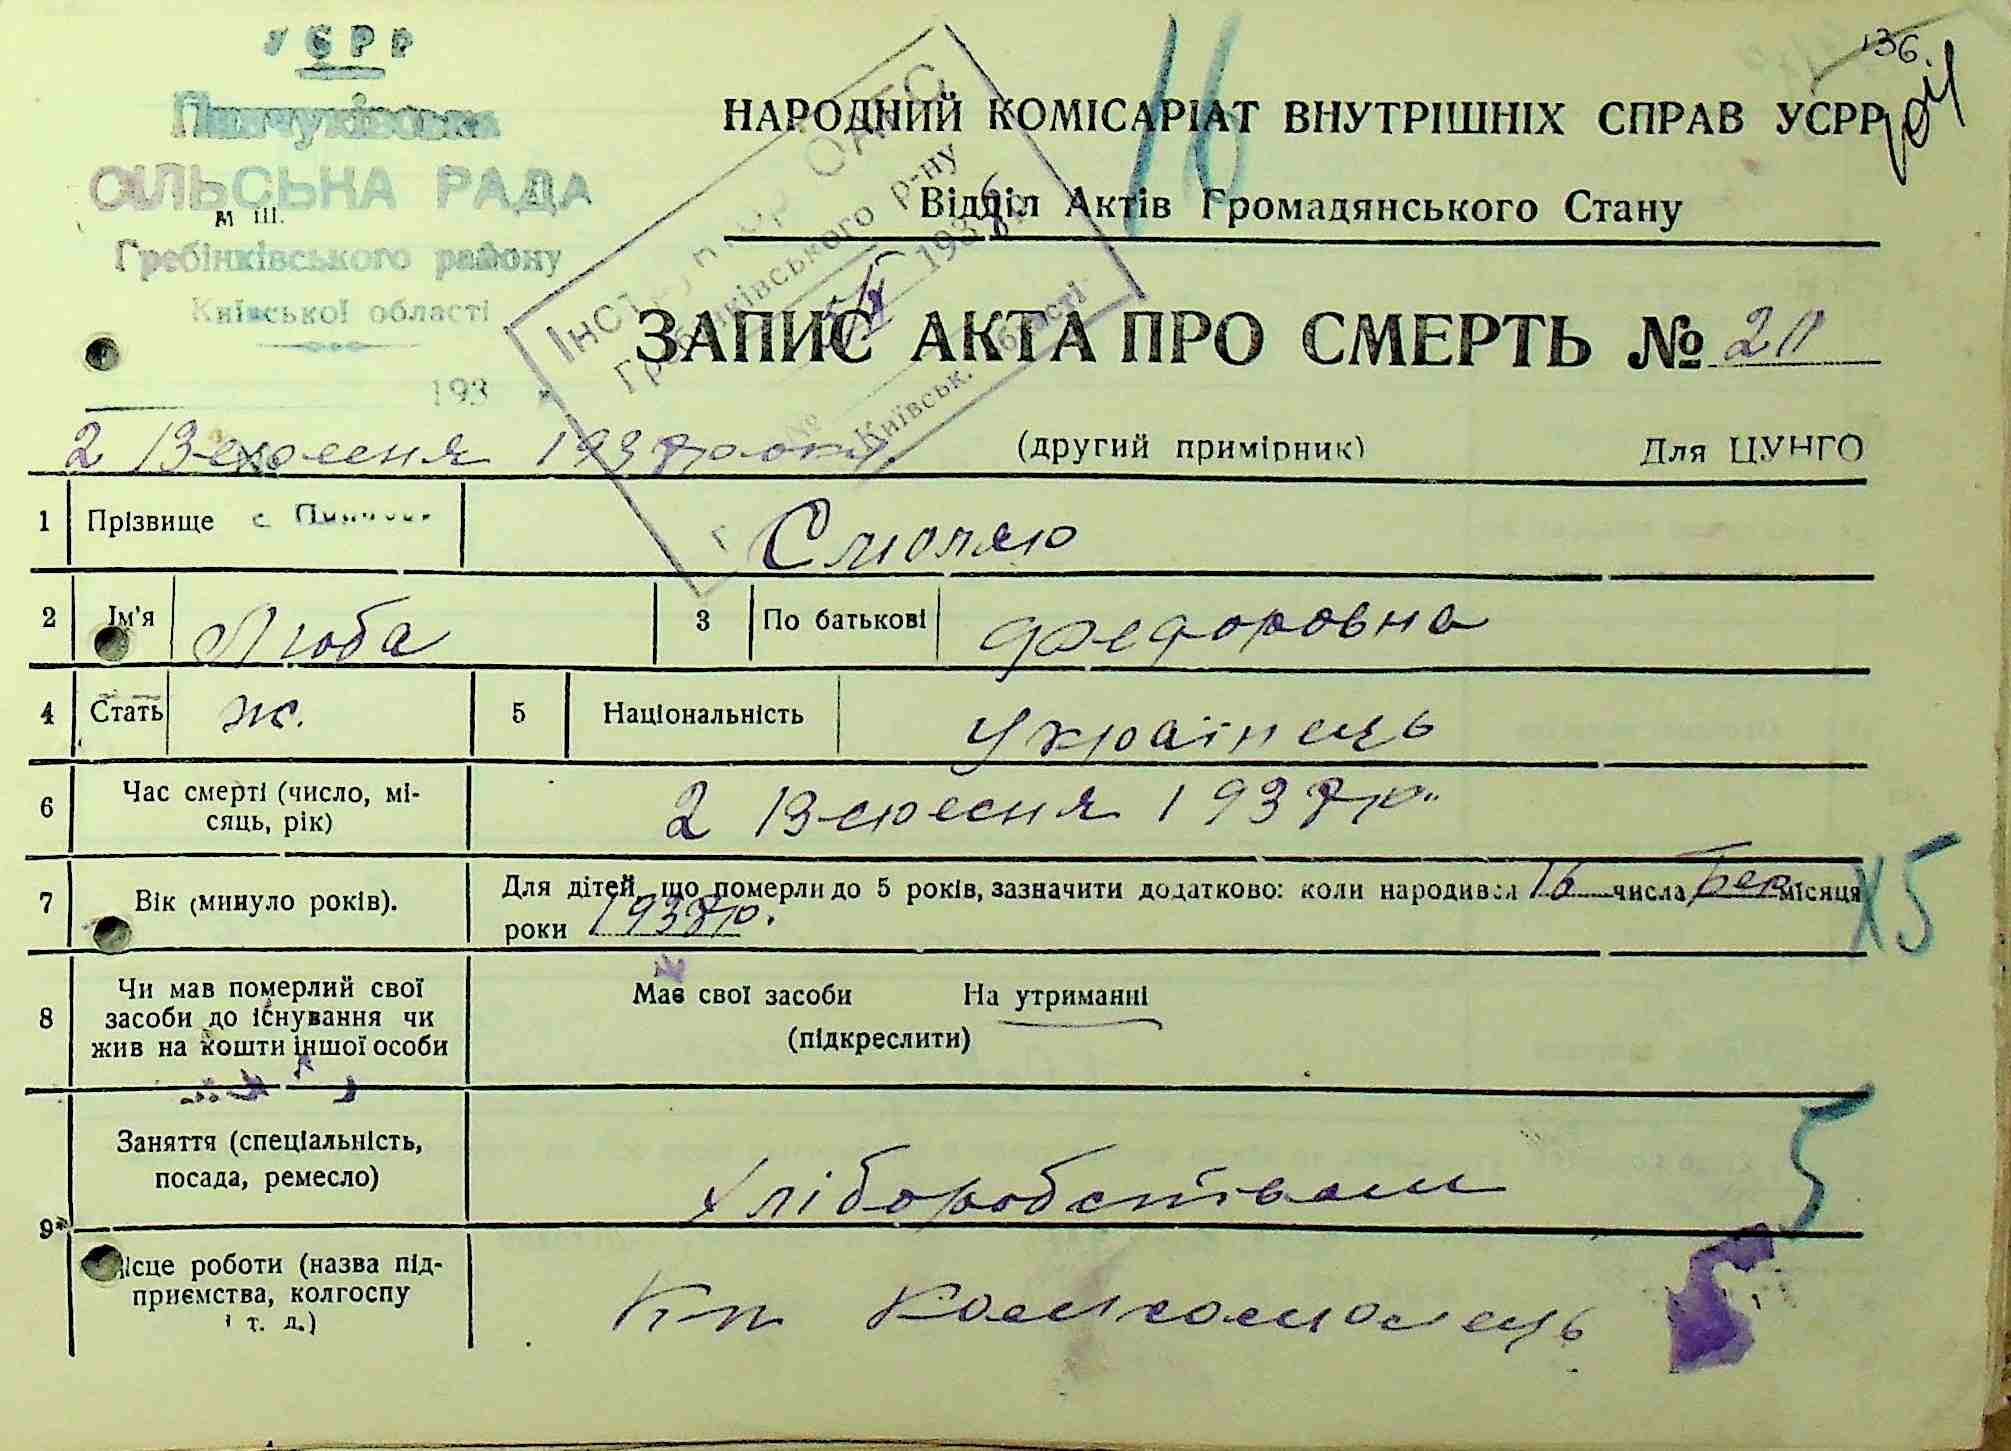 УСРР
136.
104
Пинчуківська
16
НАРОДНИЙ КОМІСАРІАТ ВНУТРІШНІХ СПРАВ УСРР
СІЛЬСЬКА РАДА
Відділ Актів Громадянського Стану
Гребінківського району
Київської області
Гребінківського р-ну
193
Київськ. області
ЗАПИС АКТА ПРО СМЕРТЬ № 20
193
2 Вересня 1937 року
(другий примірник) Для ЦУНГО
1 Прізвище
2 Ім'я Люба 3 По батькові Федоровна
4 Стать ж. 5 Національність Українець
6 Час смерті (число, мі-
сяць, рік)
2 Вересня 1937р.
7 Вік (минуло років).
Для дітей, що померли до 5 років, зазначити додатково: коли народився 16 числа Бер місяця
роки 1937р.
Х5
8 Чи мав померлий свої
засоби до існування чи
жив на кошти іншої особи
Має свої засоби На утриманні
(підкреслити)
9 Заняття (спеціальність,
посада, ремесло)
Хліборобством
5
Місце роботи (назва під-
приємства, колгоспу
і т. д.)
Комсомолець